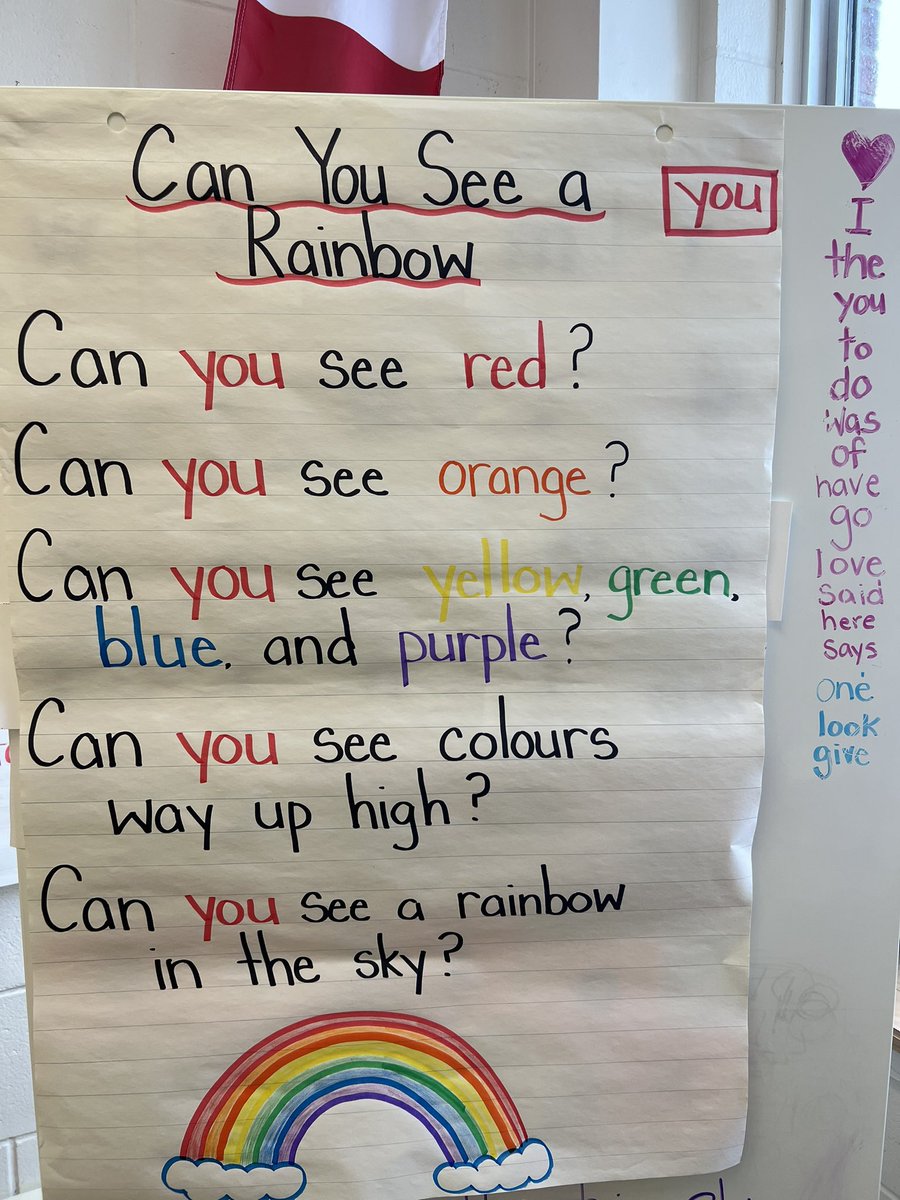 Can You See a
Rainbow
you
Can you see red?
Can you see orange?
Can you see yellow, green,
blue, and purple?
Can you see colours
way up high?
Can you see a rainbow
in the sky?
I
the
you
to
do
was
of
have
go
love
said
here
says
one
look
give